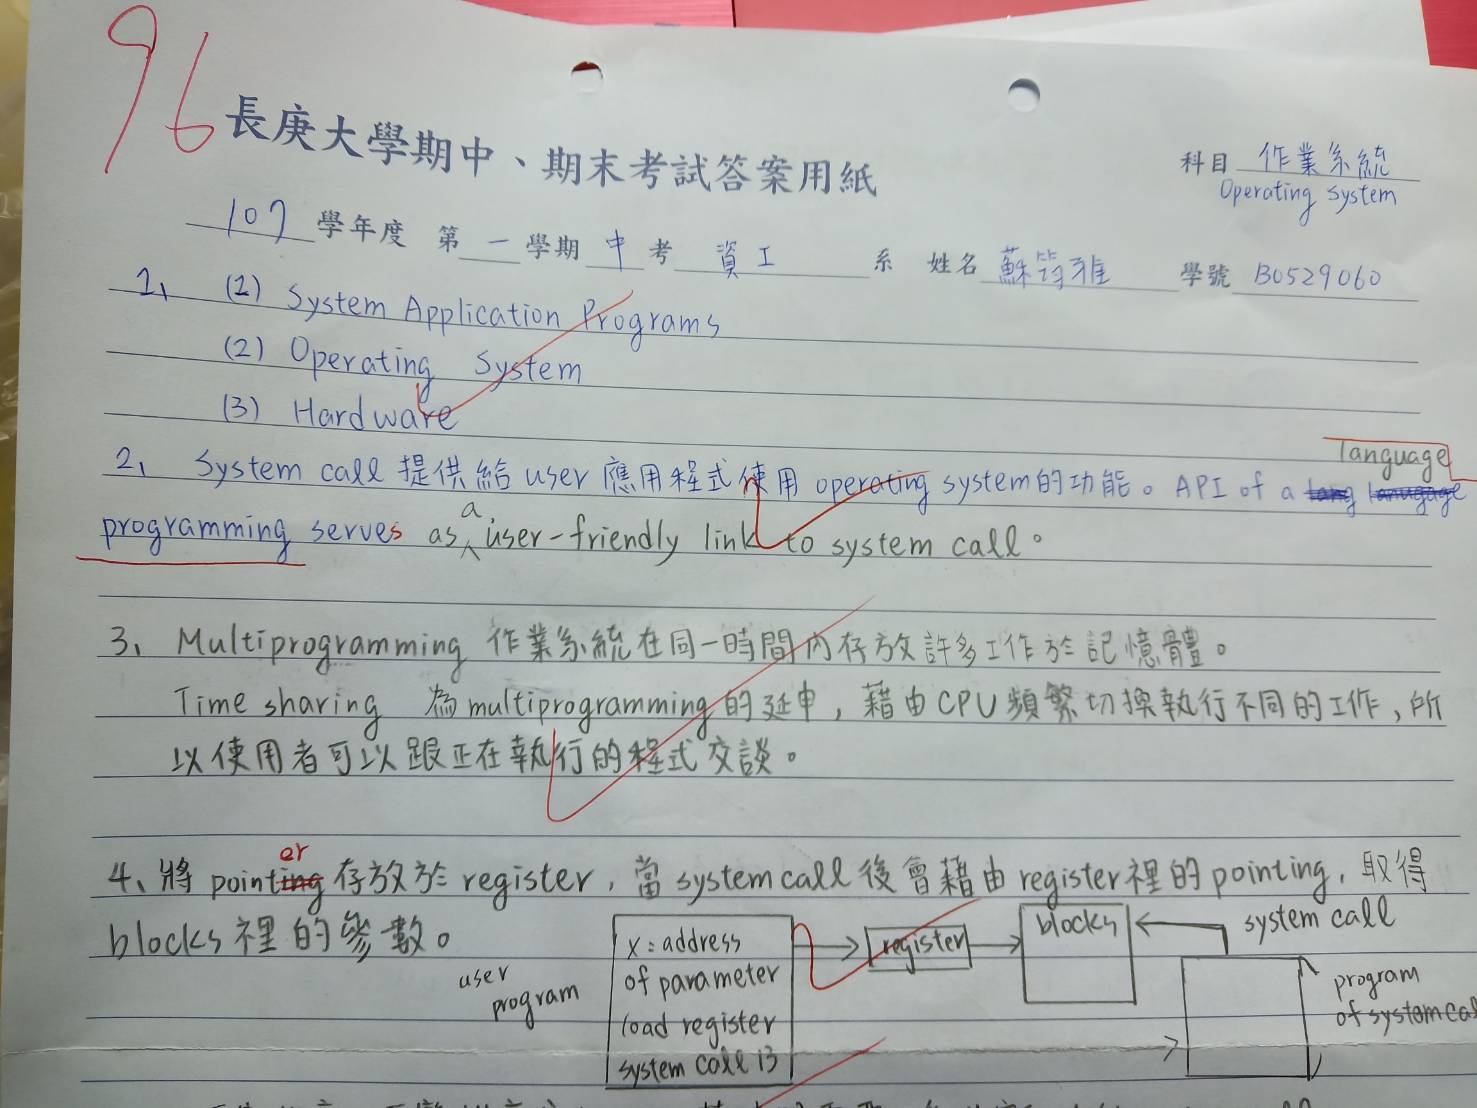 96
長庚大學期中、期末考試答案用紙
科目 作業系統
Operating system
107 學年度 第 一 學期 中 考 資工 系 姓名 蘇筠雅 學號 B0529060
1、 (1) System Application Programs
(2) Operating System
(3) Hardware
2、 System call 提供給 user 應用程式使用 operating system的功能。API of a lang lanugage language
programming serves as a user-friendly link to system call。
3、 Multiprogramming 作業系統在同一時間內存放許多工作於記憶體。
Time sharing 為multiprogramming的延申，藉由CPU頻繁切換執行不同的工作，所
以使用者可以跟正在執行的程式交談。
4、將 pointing er 存放於 register，當 system call 後會藉由 register裡的 pointing，取得
blocks 裡的參數。
user
program
X: address
of parameter
load register
system call 13
register
blocks
system call
program
of system cal